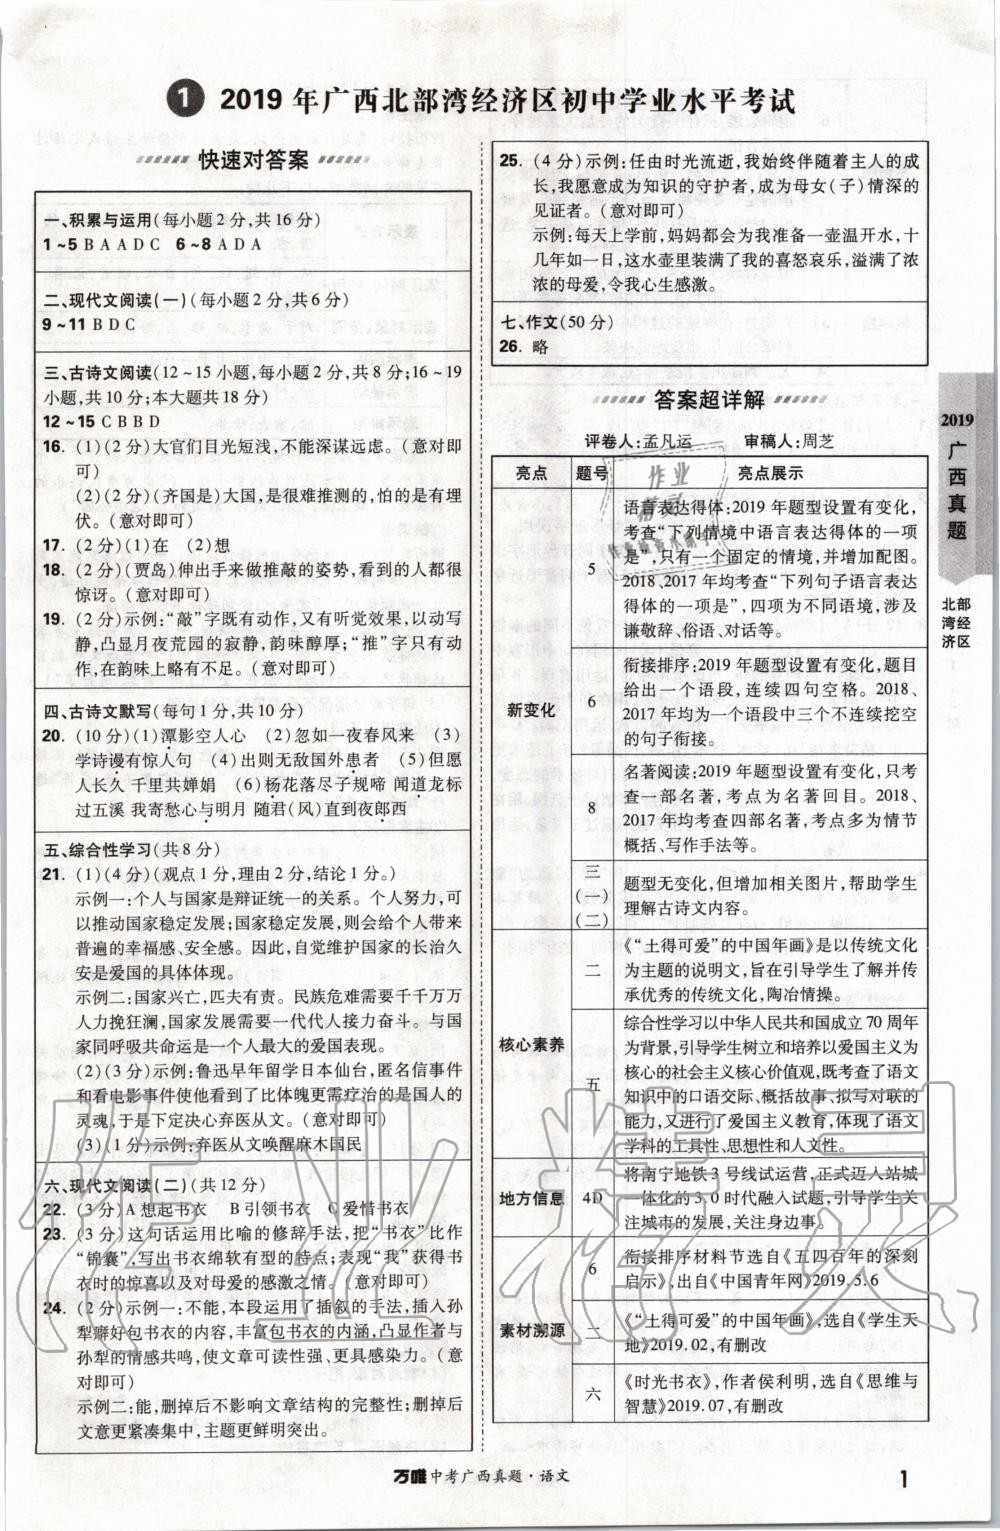 1 2019年广西北部湾经济区初中学业水平考试
快速对答案
一、积累与运用(每小题2分,共16分)
1~5 B A A D C 6~8 A D A
二、现代文阅读(一)(每小题2分,共6分)
9~11 B D C
三、古诗文阅读(12~15小题,每小题2分,共8分;16~19
小题,共10分;本大题共18分)
12~15 C B B D
16. (1)(2分)大官们目光短浅,不能深谋远虑。(意对即
可)
(2)(2分)(齐国是)大国,是很难推测的,怕的是有埋
伏。(意对即可)
17. (2分)(1)在 (2)想
18. (2分)(贾岛)伸出手来做推敲的姿势,看到的人都很
惊讶。(意对即可)
19. (2分)示例:“敲”字既有动作,又有听觉效果,以动写
静,凸显月夜荒园的寂静,韵味醇厚;“推”字只有动
作,在韵味上略有不足。(意对即可)
四、古诗文默写(每句1分,共10分)
20. (10分)(1)潭影空人心 (2)忽如一夜春风来 (3)
学诗谩有惊人句 (4)出则无敌国外患者 (5)但愿
人长久 千里共婵娟 (6)杨花落尽子规啼 闻道龙标
过五溪 我寄愁心与明月 随君(风)直到夜郎西
五、综合性学习(共8分)
21. (1)(4分)(观点1分,理由2分,结论1分。)
示例一:个人与国家是辩证统一的关系。个人努力,可
以推动国家稳定发展;国家稳定发展,则会给个人带来
普遍的幸福感、安全感。因此,自觉维护国家的长治久
安是爱国的具体体现。
示例二:国家兴亡,匹夫有责。民族危难需要千千万万
人力挽狂澜,国家发展需要一代代人接力奋斗。与国
家同呼吸共命运是一个人最大的爱国表现。
(2)(3分)示例:鲁迅早年留学日本仙台,匿名信事件
和看电影事件使他看到了比体魄更需疗治的是国人的
灵魂,于是下定决心弃医从文。(意对即可)
(3)(1分)示例:弃医从文唤醒麻木国民
六、现代文阅读(二)(共12分)
22. (3分)A 想起书衣 B 引领书衣 C 爱惜书衣
23. (3分)这句话运用比喻的修辞手法,把“书衣”比作
“锦囊”,写出书衣绵软有型的特点;表现“我”获得书
衣时的惊喜以及对母爱的感激之情。(意对即可)
24. (2分)示例一:不能,本段运用了插叙的手法,插入孙
犁癖好包书衣的内容,丰富包书衣的内涵,凸显作者与
孙犁的情感共鸣,使文章可读性强、更具感染力。(意
对即可)
示例二:能,删掉后不影响文章结构的完整性;删掉后
文意更紧凑集中,主题更鲜明突出。
25. (4分)示例:任由时光流逝,我始终伴随着主人的成
长,我愿意成为知识的守护者,成为母女(子)情深的
见证者。(意对即可)
示例:每天上学前,妈妈都会为我准备一壶温开水,十
几年如一日,这水壶里装满了我的喜怒哀乐,溢满了浓
浓的母爱,令我心生感激。
七、作文(50分)
26. 略
答案超详解
评卷人:孟凡运 审稿人:周芝
亮点 题号 亮点展示
新变化
5
语言表达得体:2019年题型设置有变化,
考查“下列情境中语言表达得体的一项
是”,只有一个固定的情境,并增加配图。
2018、2017年均考查“下列句子语言表达
得体的一项是”,四项为不同语境,涉及
谦敬辞、俗语、对话等。
6
衔接排序:2019年题型设置有变化,题目
给出一个语段,连续四句空格。2018、
2017年均为一个语段中三个不连续挖空
的句子衔接。
8
名著阅读:2019年题型设置有变化,只考
查一部名著,考点为名著回目。2018、
2017年均考查四部名著,考点多为情节
概括、写作手法等。
三
(一)
(二)
题型无变化,但增加相关图片,帮助学生
理解古诗文内容。
核心素养
二
《“土得可爱”的中国年画》是以传统文化
为主题的说明文,旨在引导学生了解并传
承优秀的传统文化,陶冶情操。
五
综合性学习以中华人民共和国成立70周年
为背景,引导学生树立和培养以爱国主义为
核心的社会主义核心价值观,既考查了语文
知识中的口语交际、概括故事、拟写对联的
能力,又进行了爱国主义教育,体现了语文
学科的工具性、思想性和人文性。
地方信息
4D
将南宁地铁3号线试运营,正式迈入站城
一体化的3.0时代融入试题,引导学生关
注城市的发展,关注身边事。
素材溯源
6
衔接排序材料节选自《五四百年的深刻
启示》,出自《中国青年网》2019.5.6
二
《“土得可爱”的中国年画》,选自《学生天
地》2019.02,有删改
六
《时光书衣》,作者侯利明,选自《思维与
智慧》2019.07,有删改
2019
广西真题
北部
湾经
济区
作业
精灵
作业精灵
万唯中考广西真题·语文
1